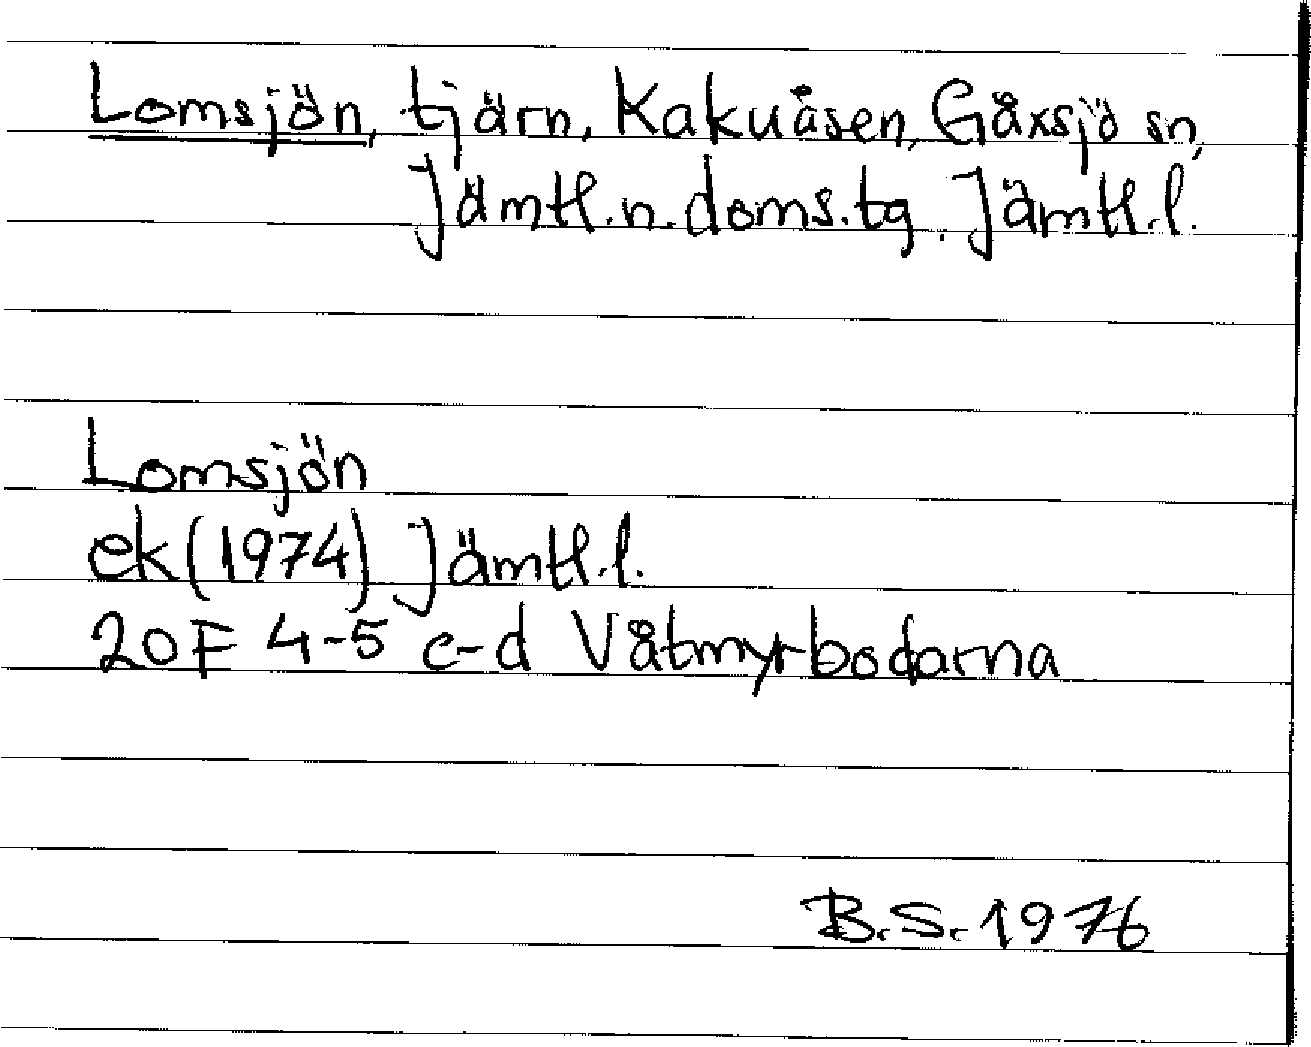 Lomsjön, tjärn, Kakuåsen, Gåxsjö sn,
Jämtl.n.doms.tg. Jämtl.l.
Lomsjön
ek(1974) Jämtl.l.
20F 4-5 c-d Våtmyrbodarna
B.S. 1976